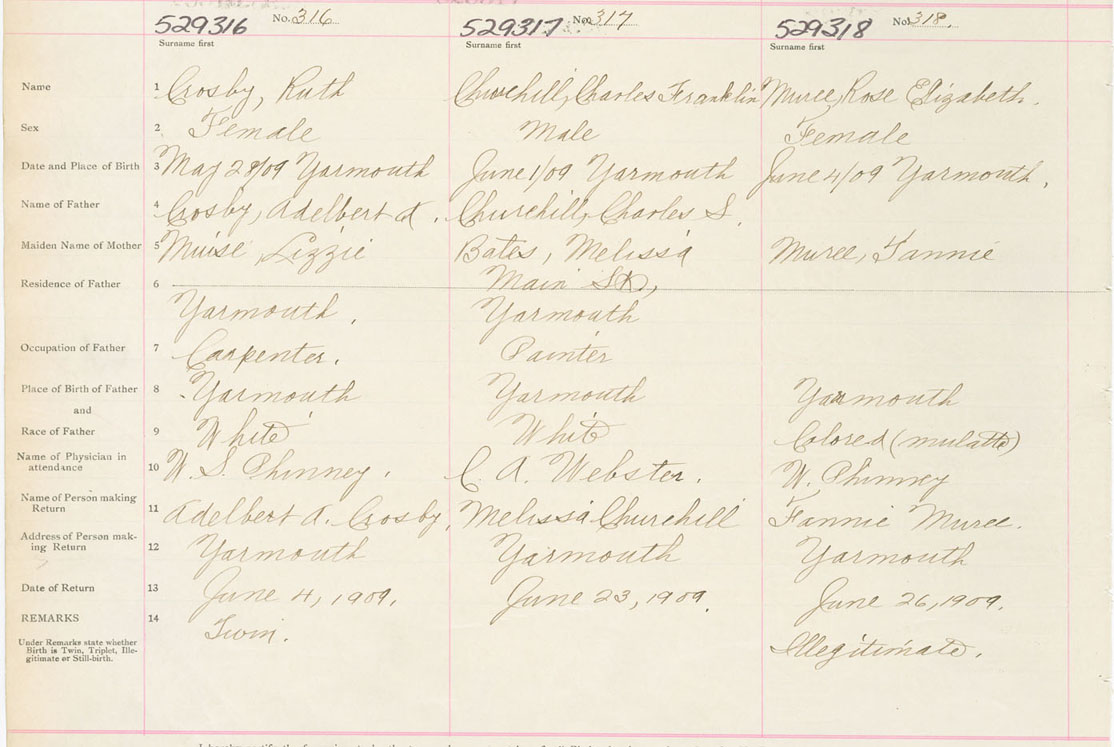 529316 No. 316 529317 No. 317 529318 No. 318.
Surname first Surname first Surname first
Name 1 Crosby, Ruth Churchill, Charles Franklin Muree, Rose Elizabeth.
Sex 2 Female Male Female
Date and Place of Birth 3 May 28/09 Yarmouth June 1/09 Yarmouth June 4/09 Yarmouth.
Name of Father 4 Crosby, Adelbert A. Churchill, Charles S.
Maiden Name of Mother 5 Muise, Lizzie Bates, Melissa Muree, Fannie
Residence of Father 6 Main St.,
Yarmouth, Yarmouth
Occupation of Father 7 Carpenter. Painter
Place of Birth of Father 8 Yarmouth Yarmouth Yarmouth
and
Race of Father 9 White White Colored (mulatto)
Name of Physician in
attendance 10 W. S. Phinney. C. A. Webster. W. Phinney
Name of Person making
Return 11 Adelbert A. Crosby, Melissa Churchill Fannie Muree.
Address of Person mak-
ing Return 12 Yarmouth Yarmouth Yarmouth
Date of Return 13 June 4, 1909. June 23, 1909. June 26, 1909.
REMARKS 14 Twin. Illegitimate.
Under Remarks state whether
Birth is Twin, Triplet, Ille-
gitimate or Still-birth.